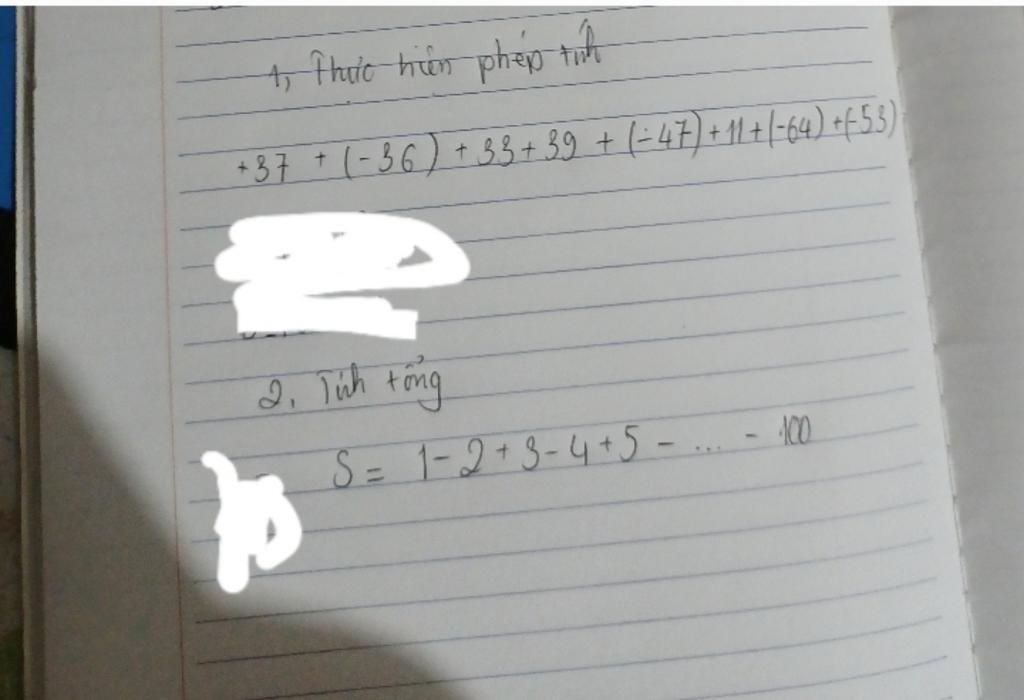 1, Thực hiện phép tính
+37 + (-36) + 33 + 39 + (-47) + 11 + (-64) + (-53)
2. Tính tổng
S = 1 - 2 + 3 - 4 + 5 - ... - 100